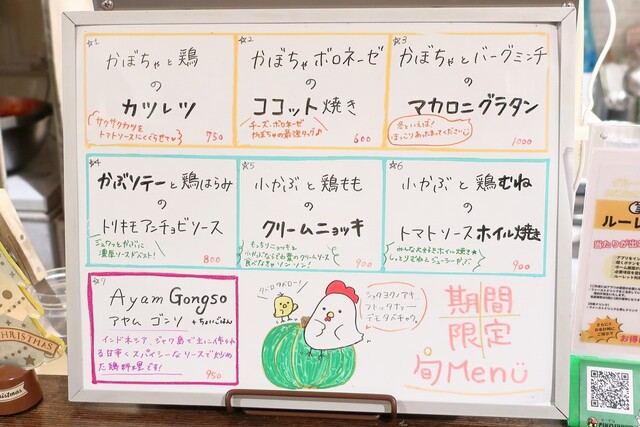 ☆1
かぼちゃと鶏
の
カツレツ
サクサクカツを
トマトソースにくぐらせて
750
☆2
かぼちゃボロネーゼ
の
ココット焼き
チーズ、ボロネーゼ
かぼちゃの最強タッグ♪
600
☆3
かぼちゃとバーグミンチ
の
マカロニグラタン
冬といえば!
ほっこりあったまってください
1000
☆4
かぶソテーと鶏はらみ
の
トリキモアンチョビソース
ジュワッとかぶに
濃厚ソースがベスト!
800
☆5
小かぶと鶏もも
の
クリームニョッキ
もっちりニョッキと
小かぶなどの冬の豊クリームソース
900
☆6
小かぶと鶏むね
の
トマトソースホイル焼き
みんな大好きホイル焼き★
しっとりむねとジューシーかぶ
900
☆7
Ayam Gongso
アヤム ゴンソ +ちょいごはん
インドネシア、ジャワ島で主に作られ
る甘辛くスパイシーなソースで炒め
た鶏料理です!
950
ショクヨクノアキ
フトッタナァー
デモタベチャウ
期間
限定
旬Menu
ルーレ
当たりが出
CHRISTMAS
Christmas